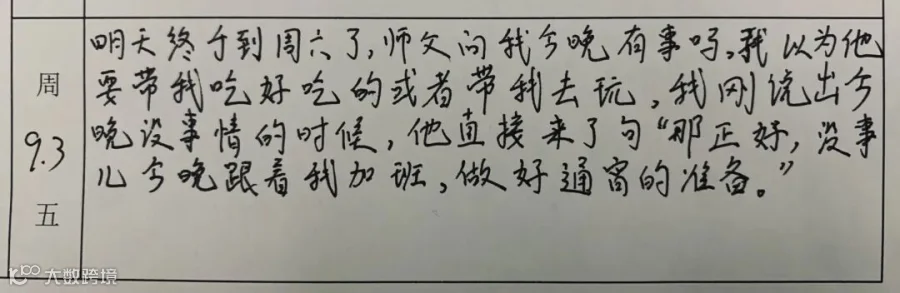 周
9.3
五
明天终于到周六了,师父问我今晚有事吗,我以为他
要带我吃好吃的或者带我去玩,我刚说出今
晚没事情的时候,他直接来了句“那正好,没事
儿今晚跟着我加班,做好通宵的准备。”
大数跨境